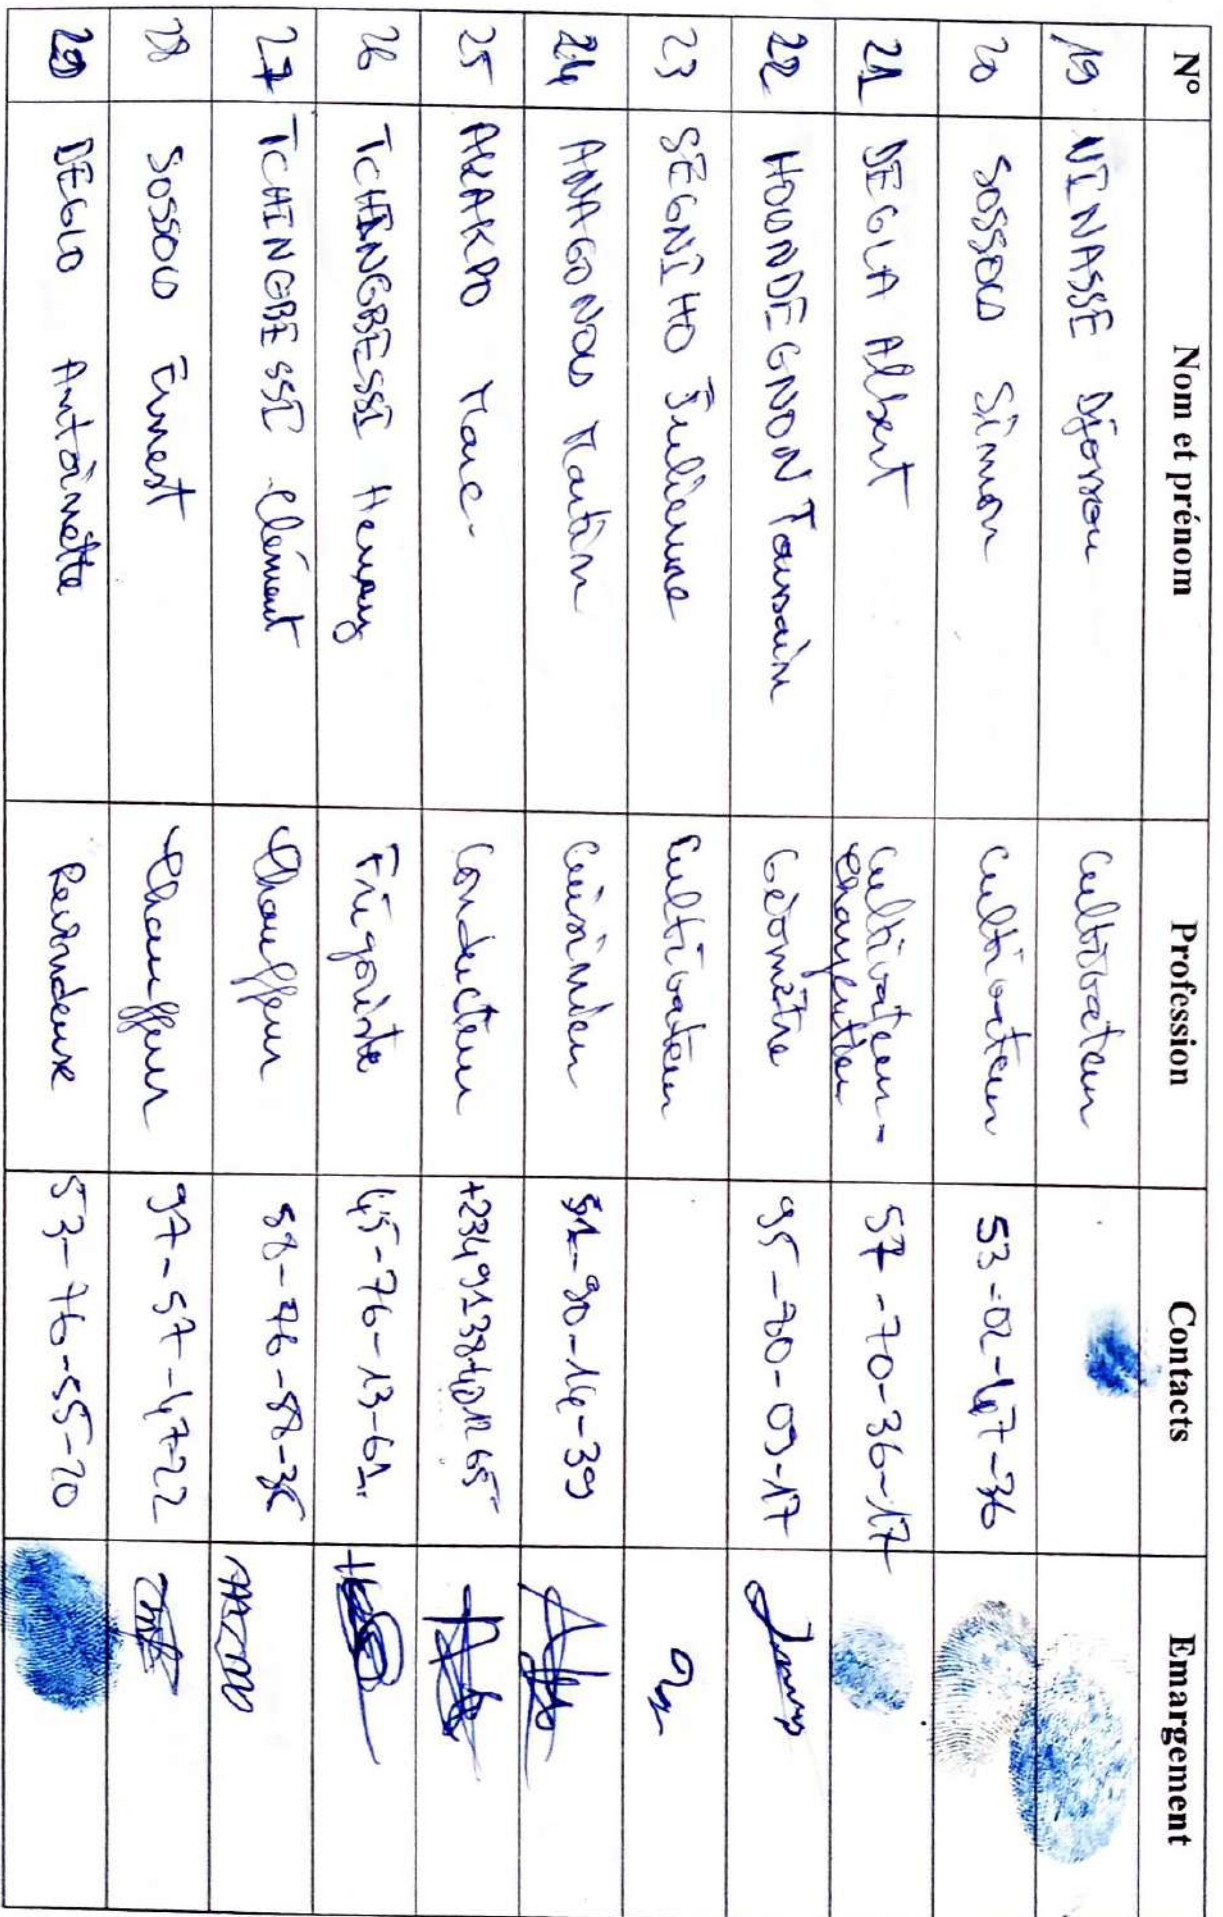 N° Nom et prénom Profession Contacts Emargement
19 VINASSE Cultivateur
20 SOSSOU Simon Cultivateur 53-02-47-36
21 DEGLA Albert Cultivateur- 57-70-36-17
charpentier
22 HOUNDEGNON Toussain Géomètre 95-70-09-17
23 SEGNIHO Julienne Cultivateur
24 ANAGONOU Martin Cuisinier 51-90-14-39
25 AKAKPO Marc Conducteur
26 TCHINGBESSI Henry Frigoriste 45-76-13-61
27 TCHINGBESSI Clément Chauffeur 58-76-88-36
28 SOSSOU Ernest Chauffeur 97-57-47-22
29 DEGLO Antoinette Revendeuse 53-76-55-20